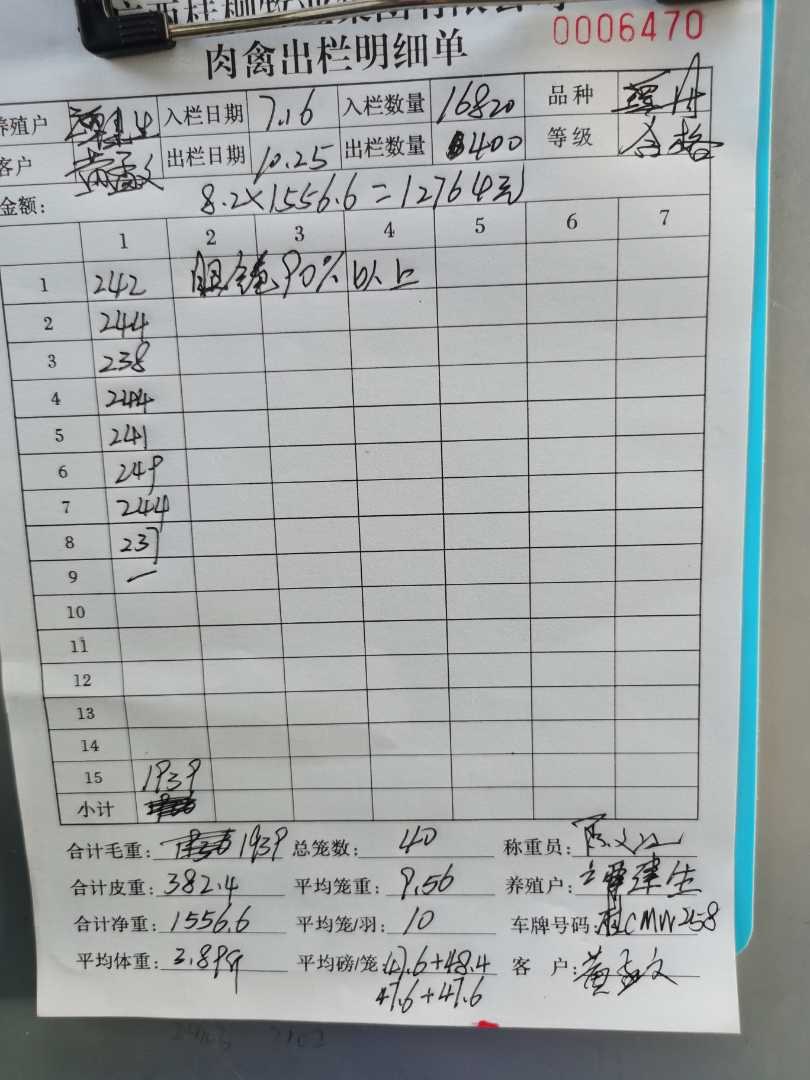 0006470
肉禽出栏明细单
养殖户 入栏日期 7.16 入栏数量 16820 品种
客户 黄孟文 出栏日期 10.25 出栏数量 400 等级 合格
金额: 8.2×1556.6=12764元
1 2 3 4 5 6 7
1 242 90%以上
2 244
3 238
4 244
5 241
6 249
7 244
8 237
9 一
10
11
12
13
14
15 1939
小计
合计毛重: 1939 总笼数: 40 称重员:
合计皮重: 382.4 平均笼重: 9.56 养殖户: 谭建生
合计净重: 1556.6 平均笼/羽: 10 车牌号码: 桂CMW258
平均体重: 3.89斤 平均磅/笼: 47.6+48.4 客 户: 黄孟文
47.6+47.6